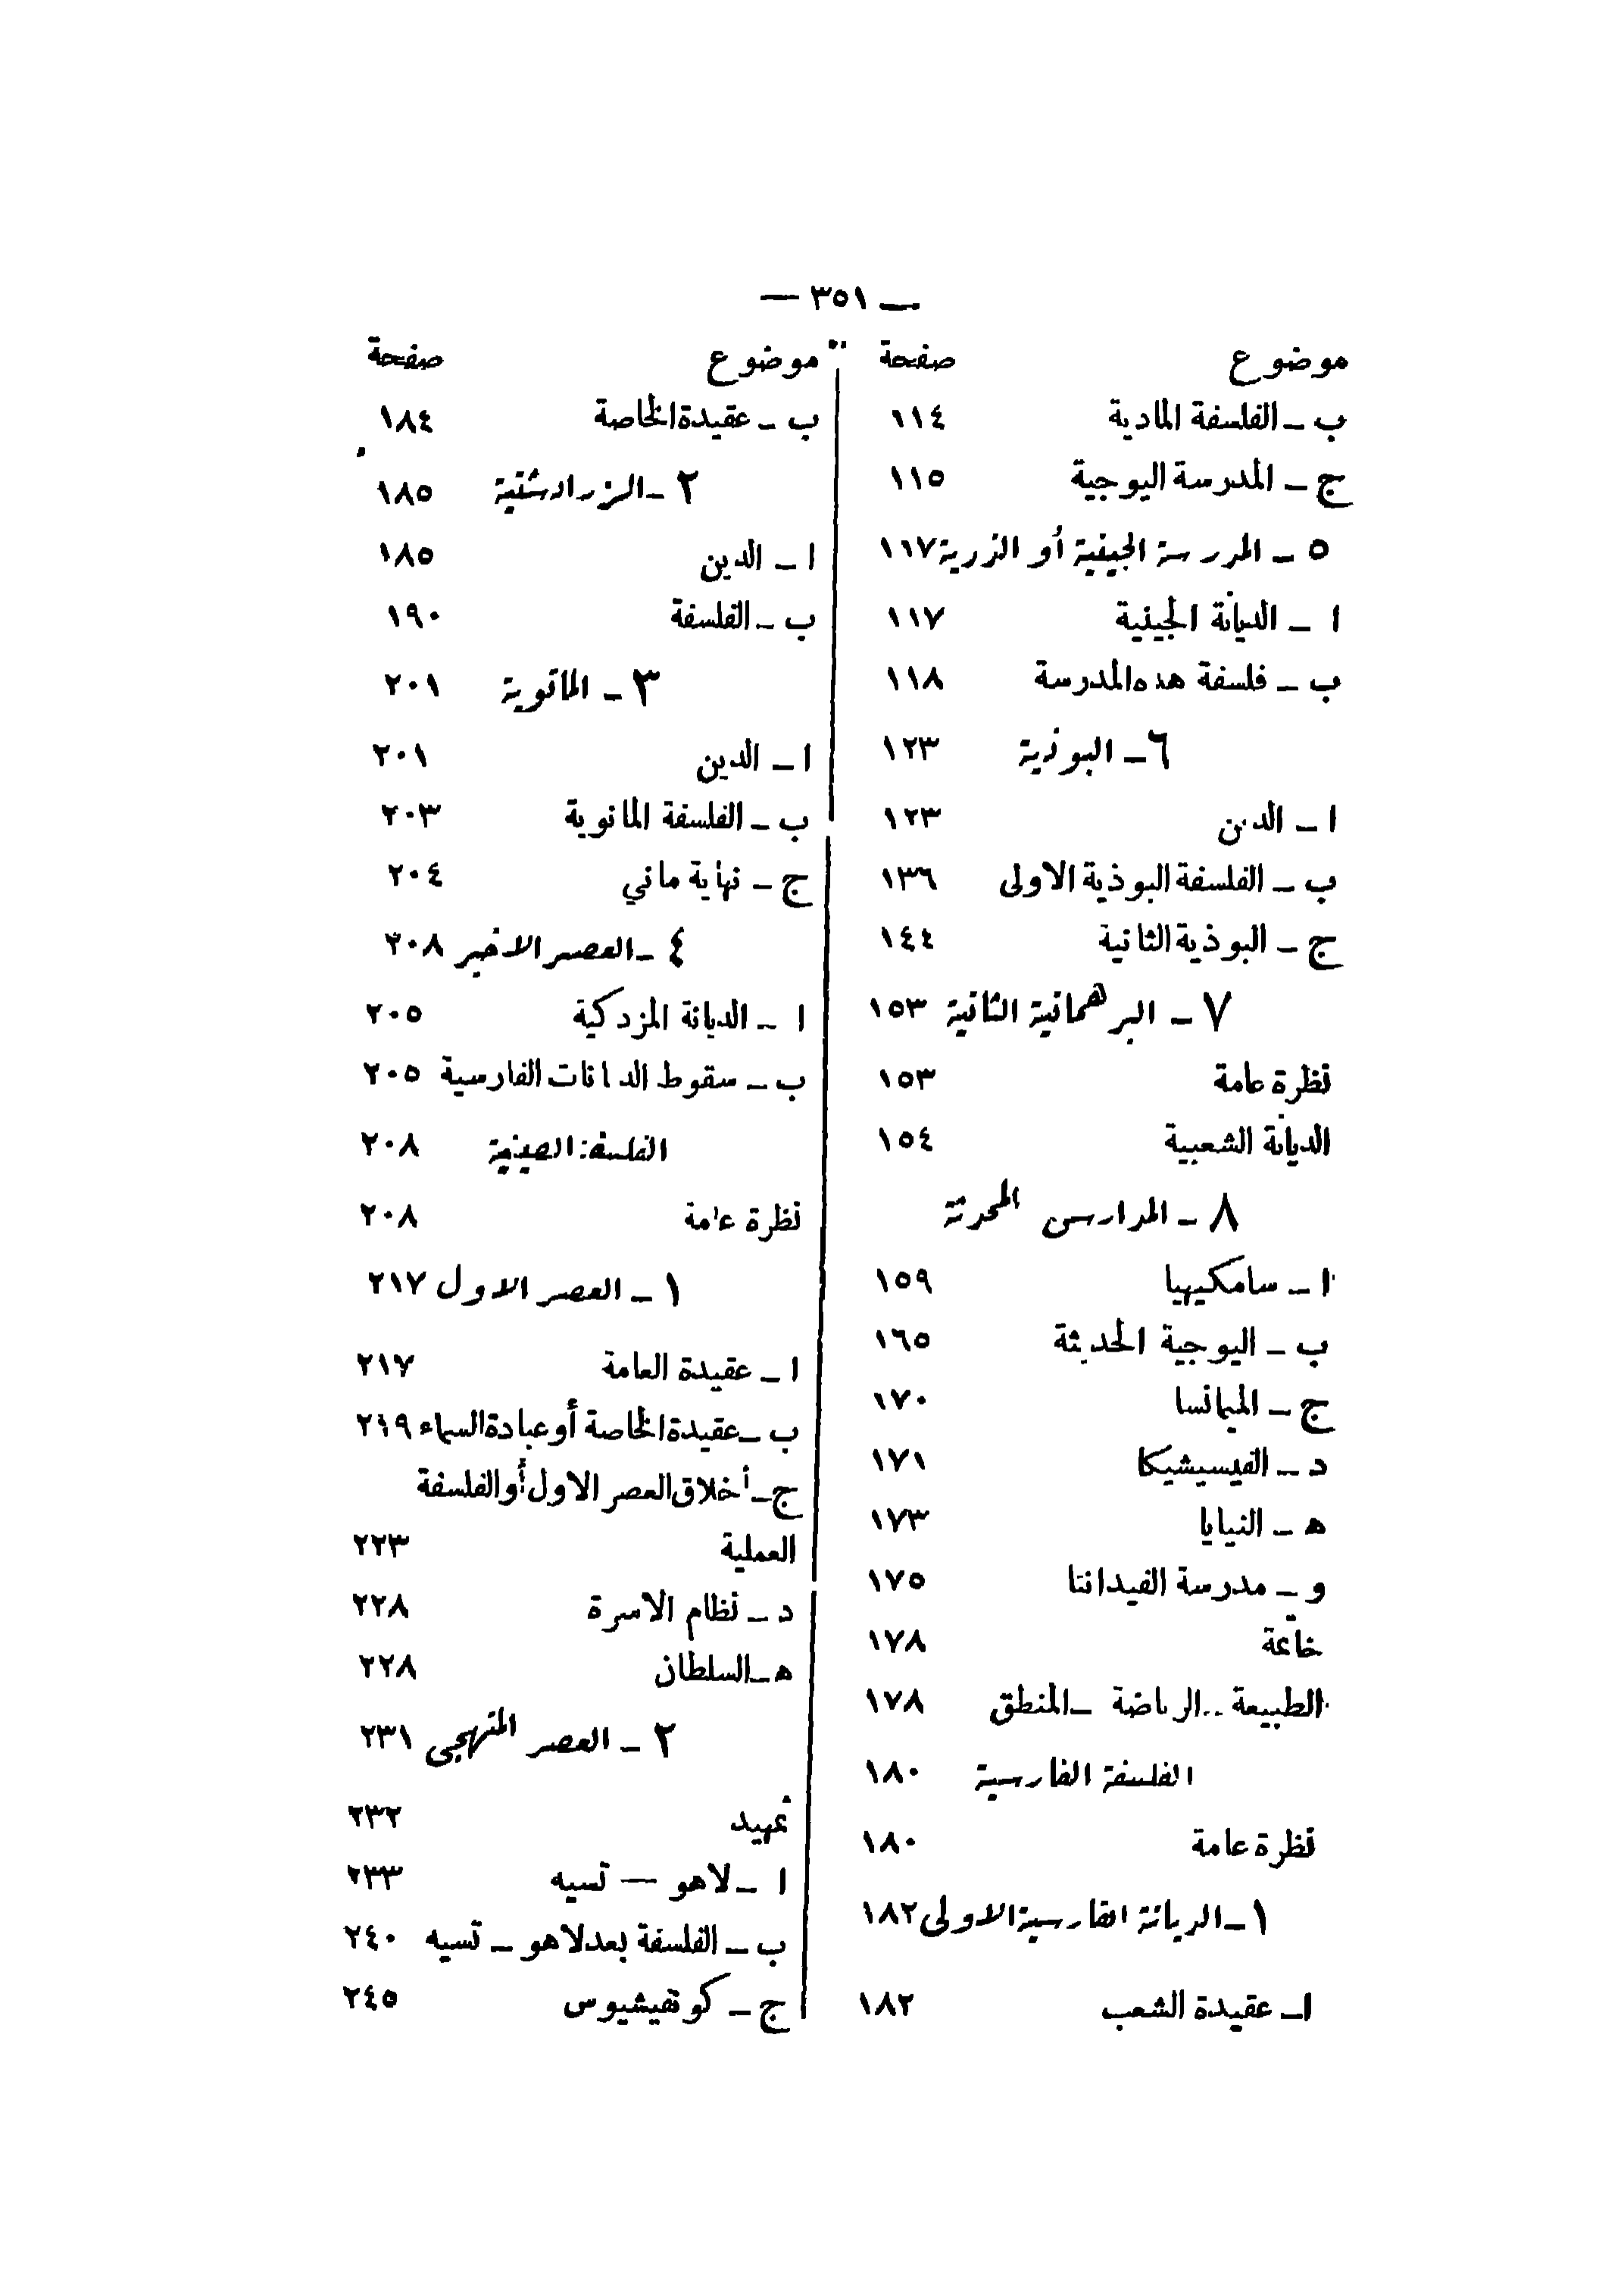 — ٣٥١ —
موضوع صفحة
ب – الفلسفة المادية ١١٤
ج – المدرسة اليوجية ١١٥
٥ – المدرسة الجينية أو الذرية ١١٧
ا – الديانة الجينية ١١٧
ب – فلسفة هذه المدرسة ١١٨
٦ – البوذية ١٢٣
ا – الدين ١٢٣
ب – الفلسفة البوذية الاولى ١٣٦
ج – البوذية الثانية ١٤٤
٧ – البرهمانية الثانية ١٥٣
نظرة عامة ١٥٣
الديانة الشعبية ١٥٤
٨ – المدارس المحدثة
ا – سامكيهيا ١٥٩
ب – اليوجية الحديثة ١٦٥
ج – الميمانسا ١٧٠
د – الفيسيشيكا ١٧١
ه – النيايا ١٧٣
و – مدرسة الفيدانتا ١٧٥
خاتمة ١٧٨
الطبيعة – الرياضة – المنطق ١٧٨
الفلسفة الفارسية ١٨٠
نظرة عامة ١٨٠
١ – الديانة الفارسية الاولى ١٨٢
ا – عقيدة الشعب ١٨٢
موضوع صفحة
ب – عقيدة الخاصة ١٨٤
٢ – الزرادشتية ١٨٥
ا – الدين ١٨٥
ب – الفلسفة ١٩٠
٣ – المانوية ٢٠١
ا – الدين ٢٠١
ب – الفلسفة المانوية ٢٠٣
ج – نهاية ماني ٢٠٤
٤ – العصر الاخير ٢٠٨
ا – الديانة المزدكية ٢٠٥
ب – سقوط الديانات الفارسية ٢٠٥
الفلسفة الصينية ٢٠٨
نظرة عامة ٢٠٨
١ – العصر الاول ٢١٧
ا – عقيدة العامة ٢١٧
ب – عقيدة الخاصة أو عبادة السماء ٢١٩
ج – أخلاق العصر الاول أو الفلسفة
العملية ٢٢٣
د – نظام الاسرة ٢٢٨
ه – السلطان ٢٢٨
٢ – العصر المنهجى ٢٣١
تمهيد ٢٣٢
ا – لاهو — تسيه ٢٣٣
ب – الفلسفة بعد لاهو – تسيه ٢٤٠
ج – كونفيشيوس ٢٤٥